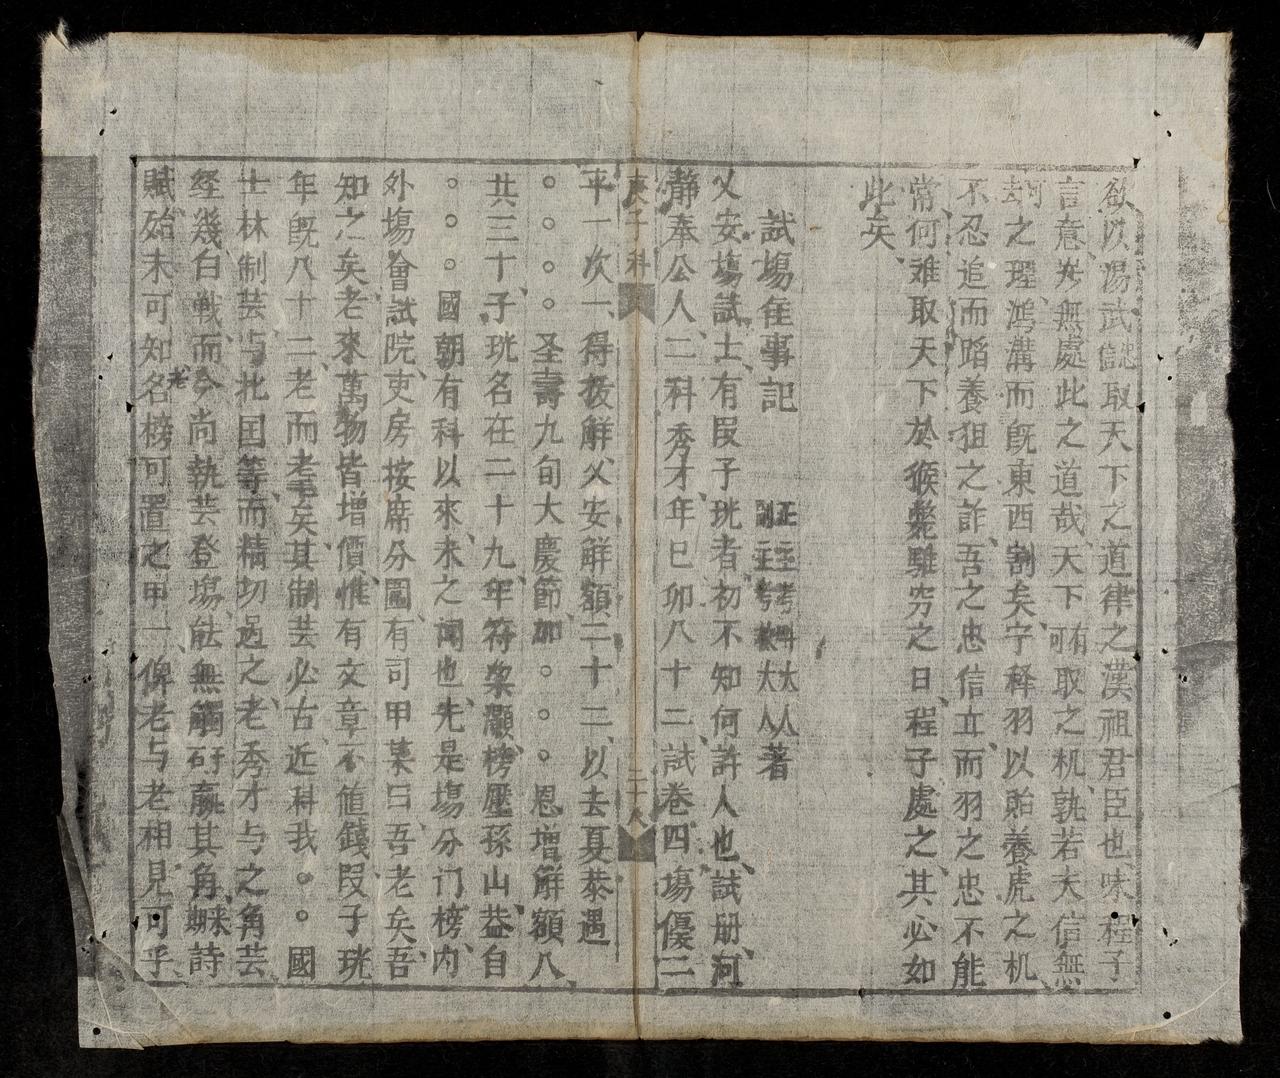 欲以湯武認取天下之道律之漢祖君臣也味程子
言意若無處此之道哉天下可有取之机孰若大信無
刼之理鴻溝而既東西割矣字释羽以貽養虎之机
不忍追而蹈養狙之詐吾之忠信立而羽之忠不能
常何难取天下於猴斃騅穷之日程子處之其必如
此矣
試塲隹事記
正主考科大人
副主考歡大人著
乂安塲試士有叚子珖者初不知何許人也試册河
靜奉公人二科秀才年巳卯八十二試卷四塲優二
庚子科
二十八
平一次一得拔觧乂安觧額二十二以去夏恭遇
。。。。圣壽九旬大慶節加。。。恩增觧額八
共三十子珖名在二十九年符梁灝榜壓孫山益自
。。。國朝有科以來未之闻也先是塲分门榜内
外塲會試院吏房按席分圍有司甲某曰吾老矣吾
知之矣老來萬物皆增價惟有文章不値錢叚子珖
年既八十二老而耄矣其制芸必古近科我。。國
士林制芸与北国等而精切過之老秀才与之角芸
经幾白戰而今尚執芸登塲能無觸藩羸其角咪詩
賦殆未可知老名榜可置之甲一俾老与老相見可乎